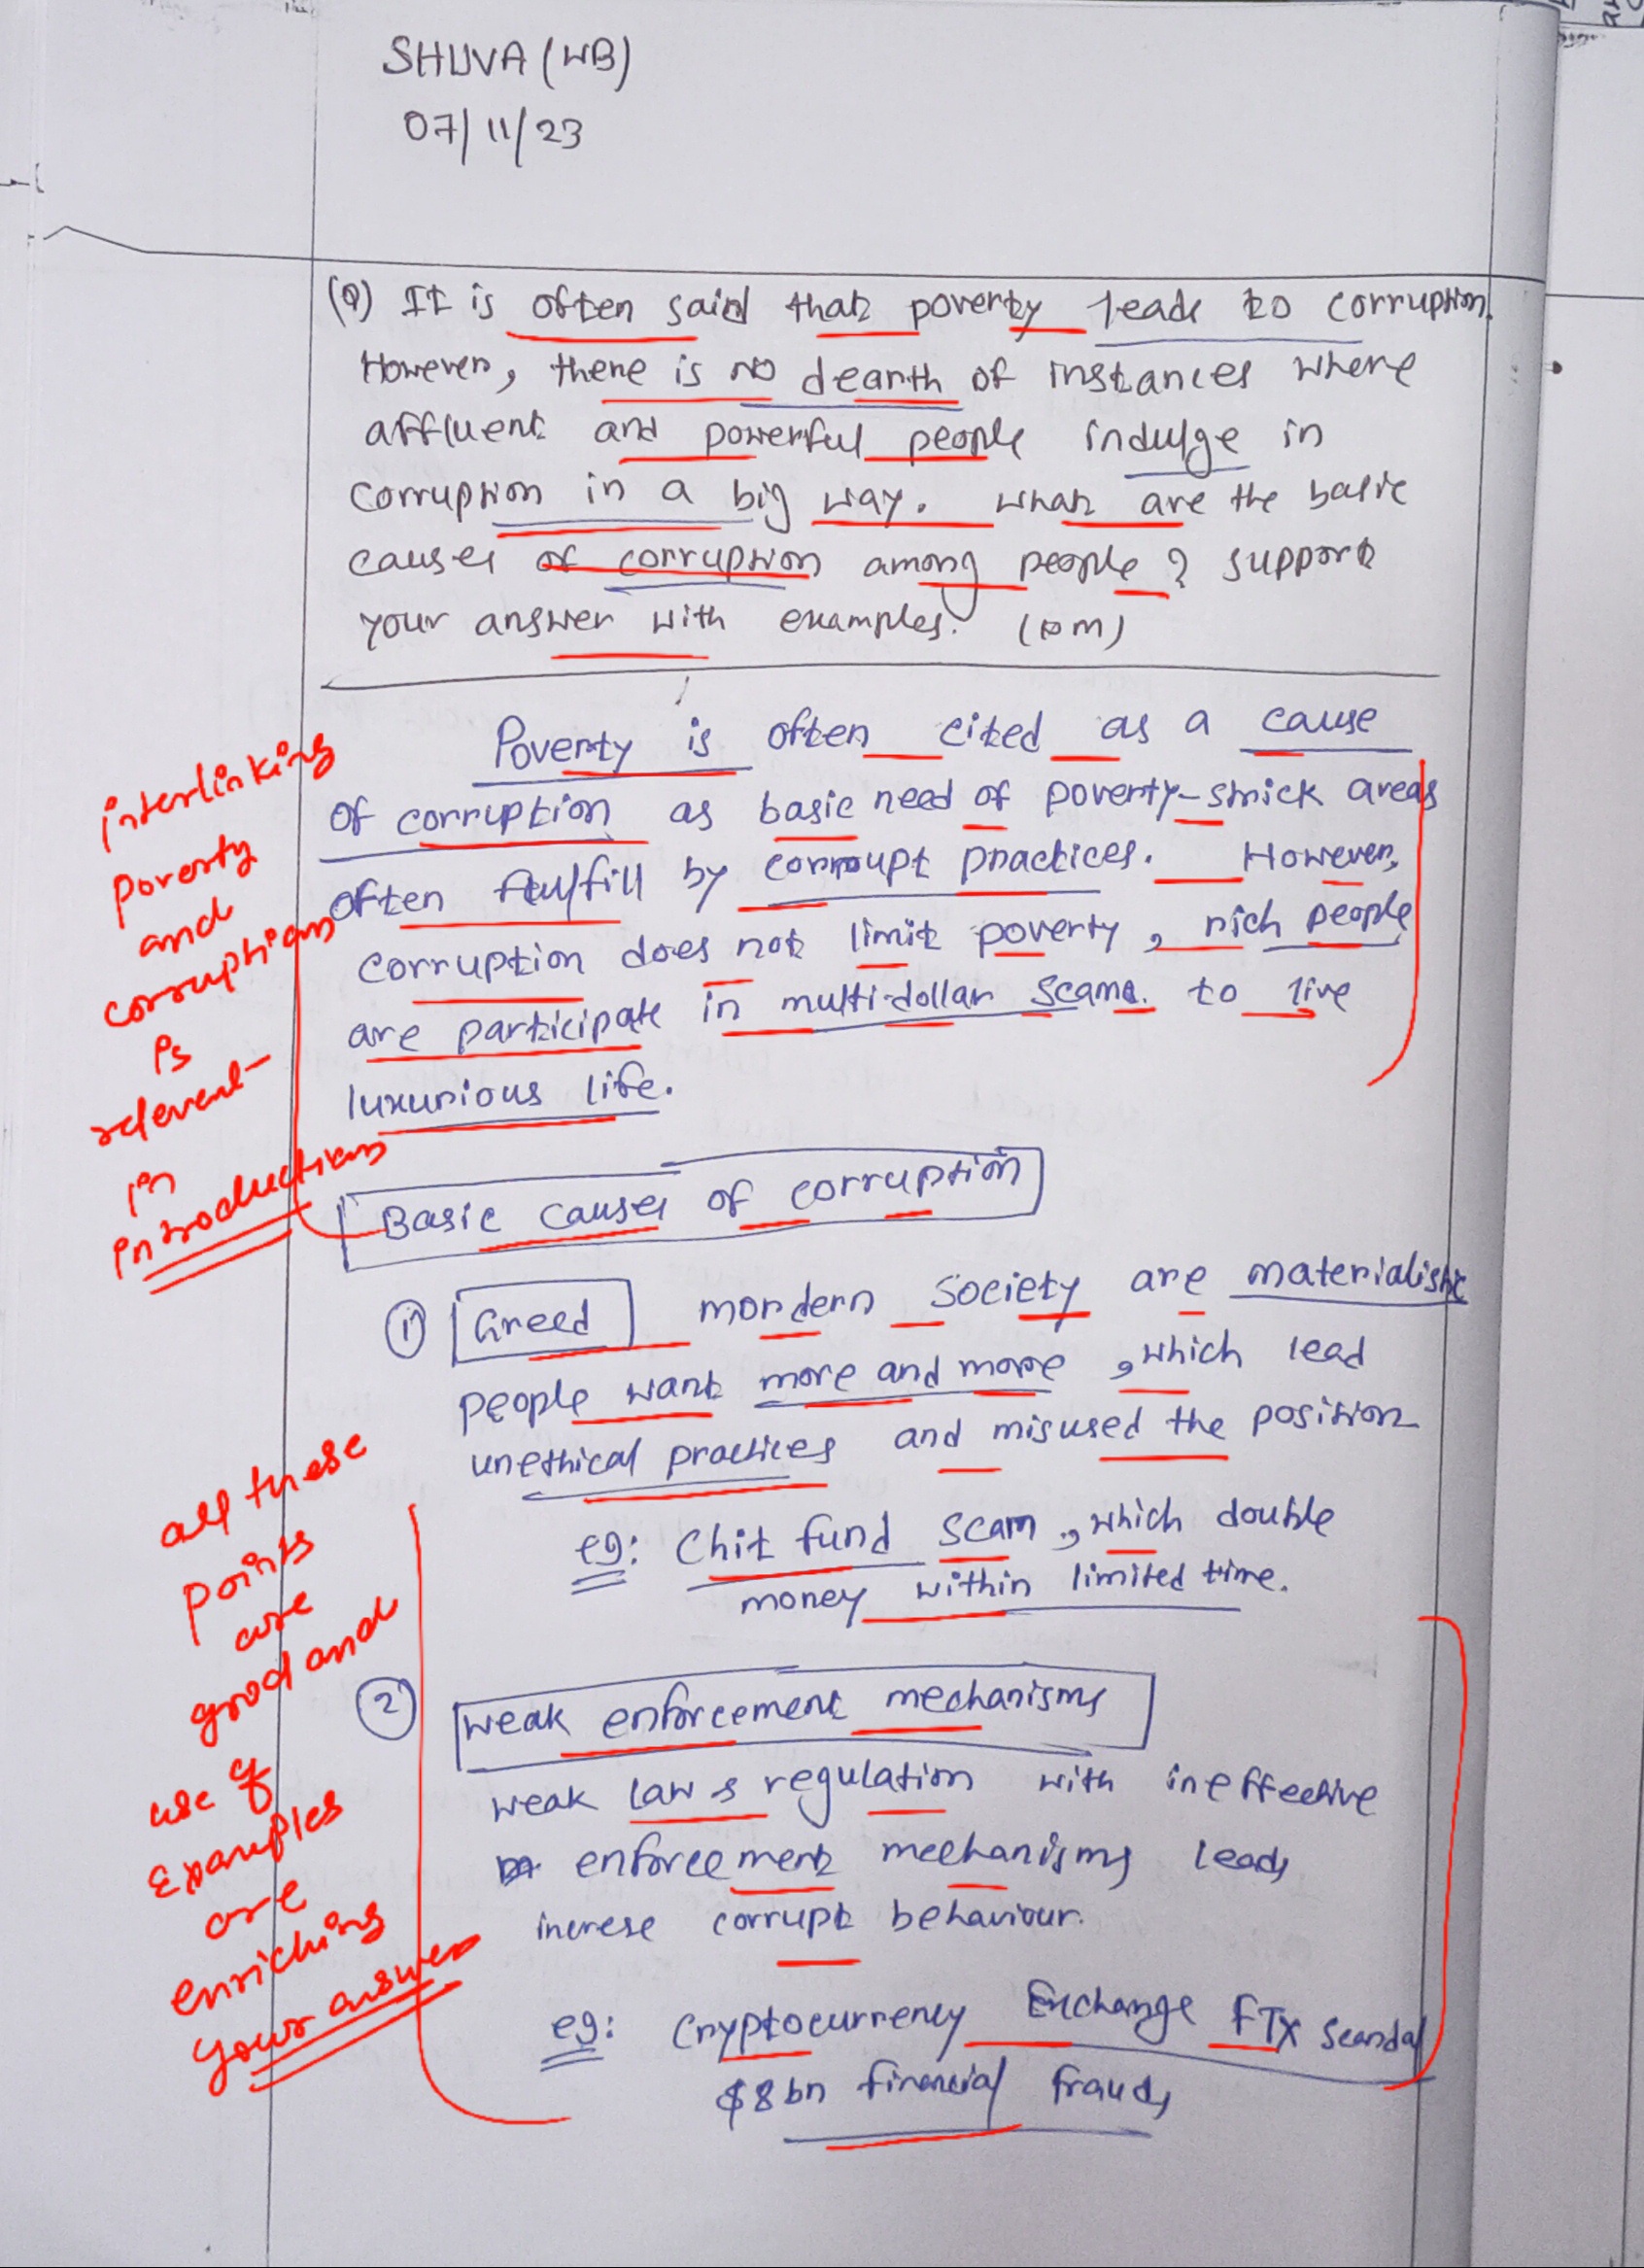 SHUVA (WB)
07/11/23
(Q) It is often said that poverty leads to corruption.
However, there is no dearth of instances where
affluent and powerful people indulge in
corruption in a big way. What are the basic
causes of corruption among people? support
your answer with examples. (10m)
Poverty is often cited as a cause
of corruption as basic need of poverty-strick areas
often fulfill by corrupt practices. However,
corruption does not limit poverty, rich people
are participate in multi-dollar scams. to live
luxurious life.
interlinking
poverty
and
corruption
is
relevent
in
introduction
Basic causes of corruption
① Greed mordern society are materialistic
people want more and more, which lead
unethical practices and misused the position
eg: Chit fund scam, which double
money within limited time.
② Weak enforcement mechanisms
weak law & regulation with ineffective
enforcement mechanisms leads
increse corrupt behaviour.
eg: Cryptocurrency Exchange FTX scandal
$8bn financial frauds
all these
points
are
good and
use of
Examples
are
enriching
your answer